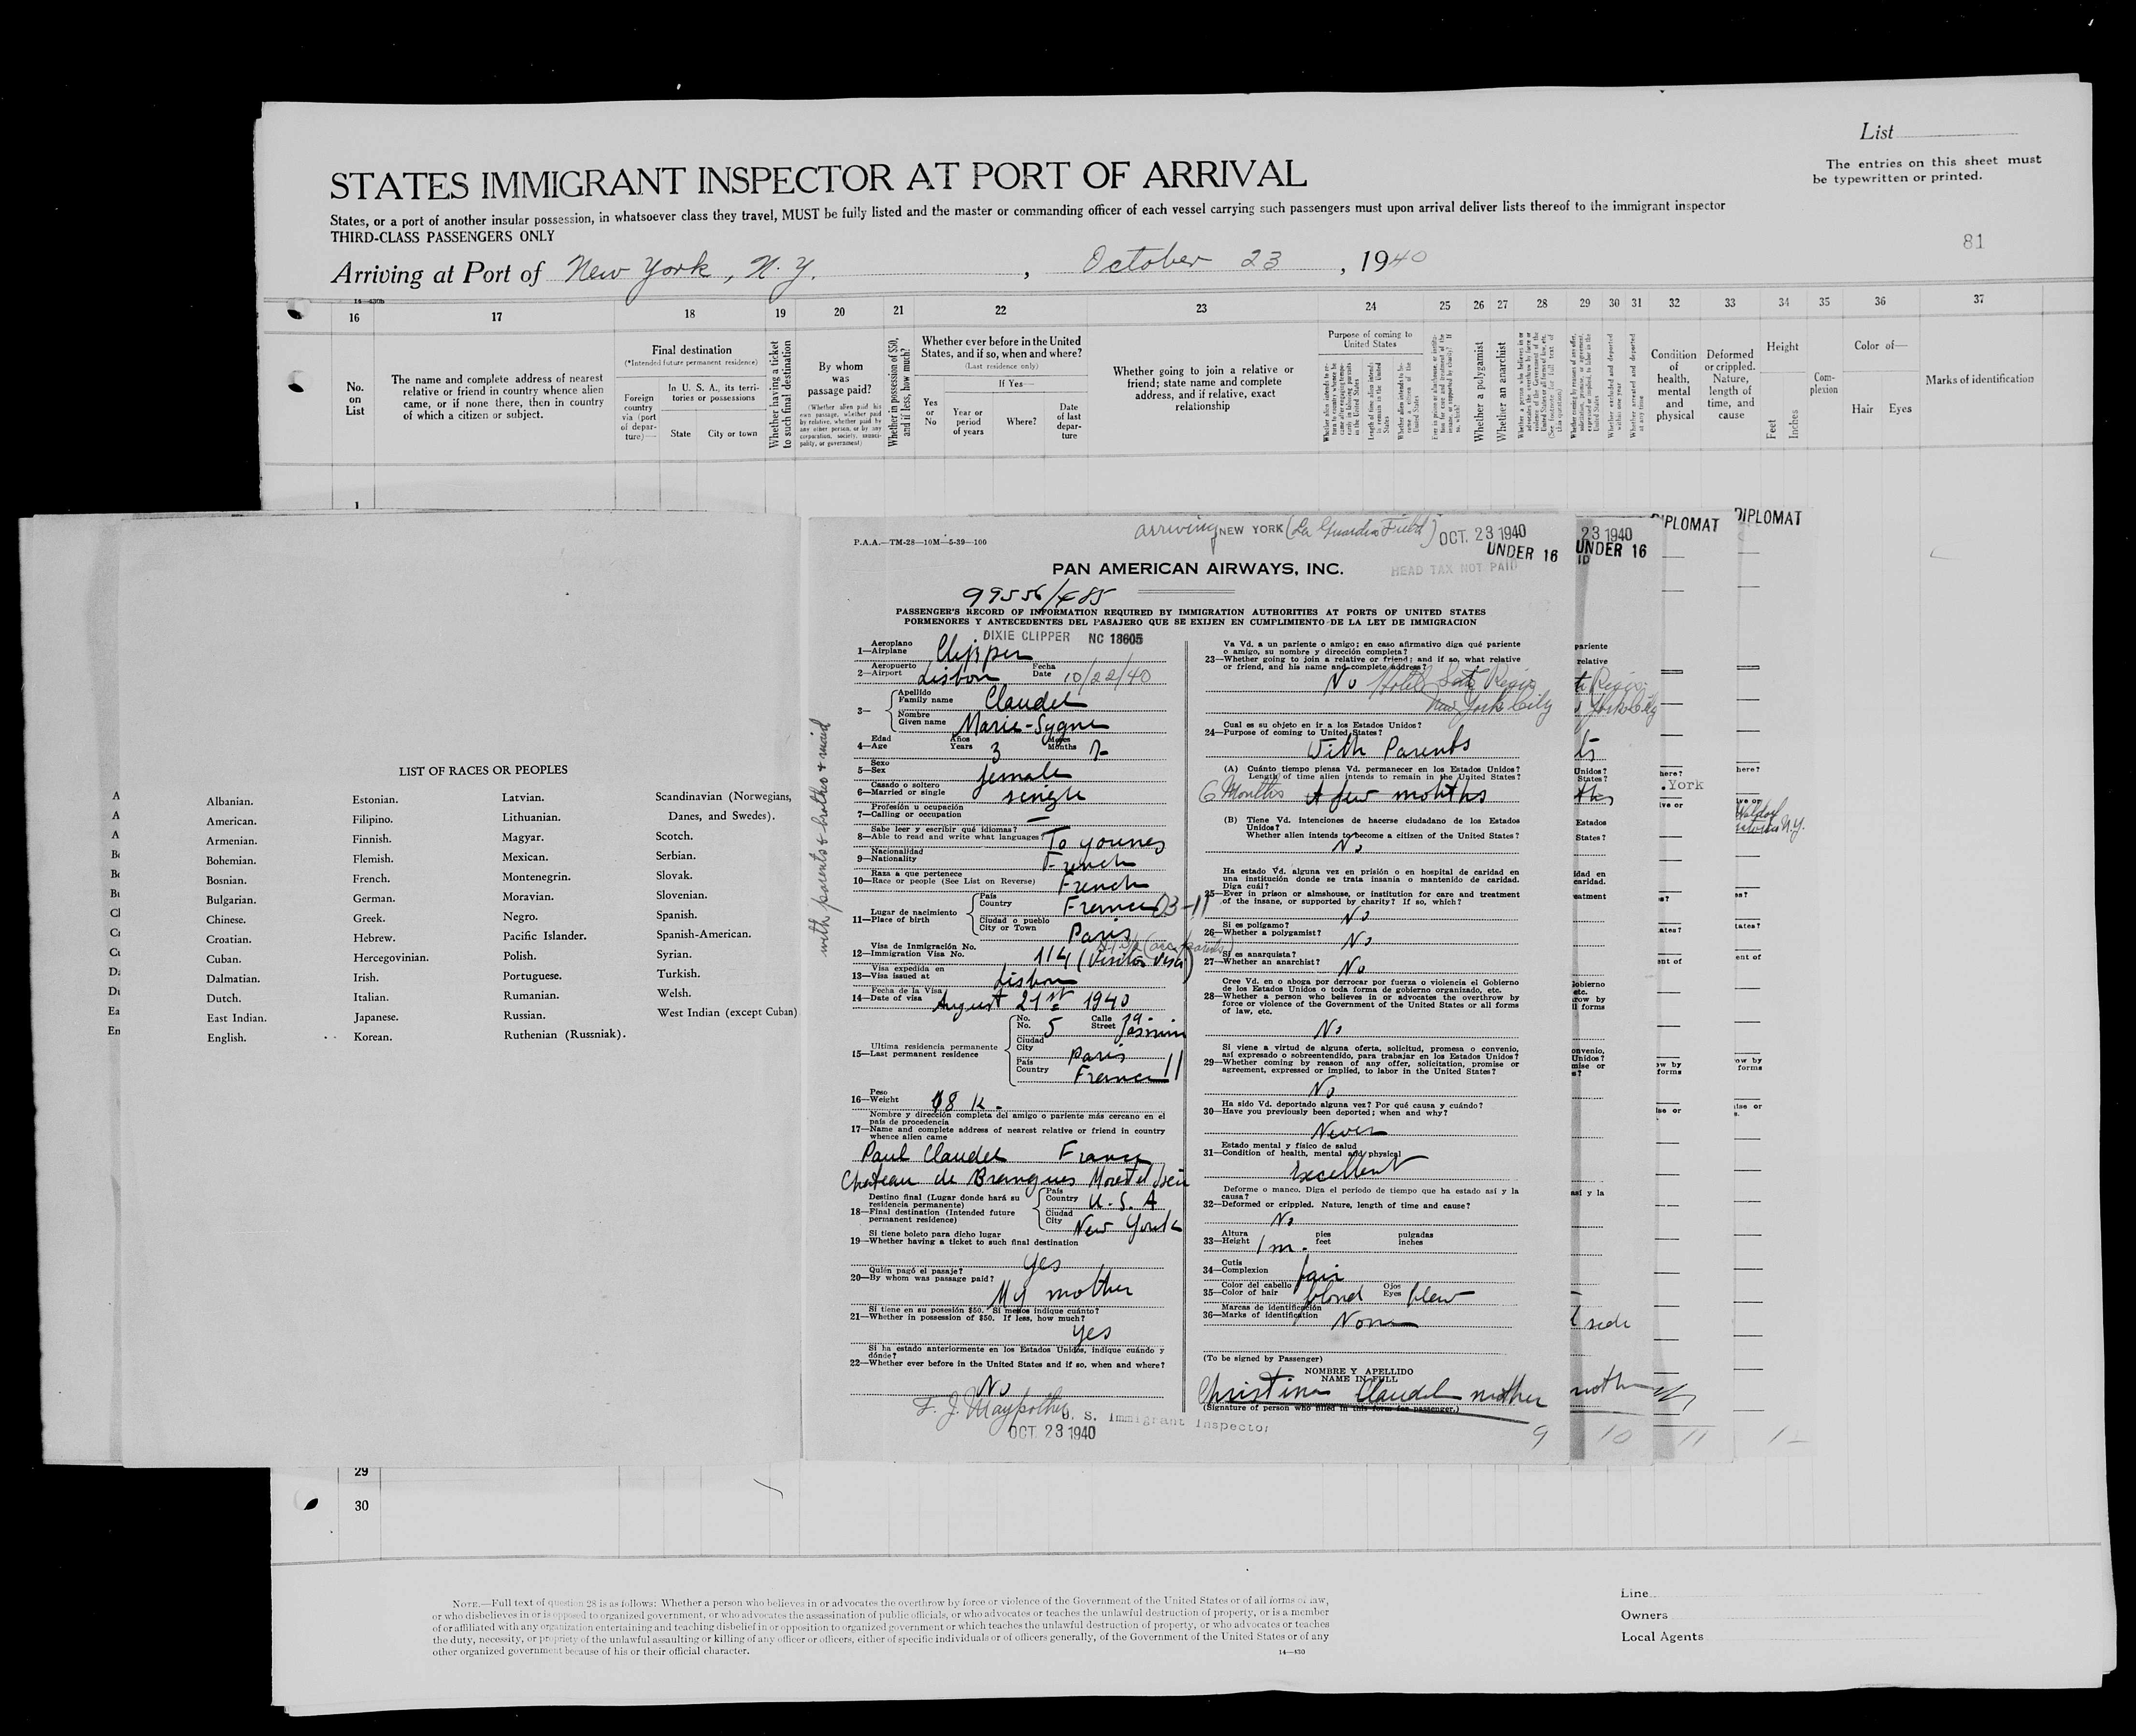 List
The entries on this sheet must
be typewritten or printed.
STATES IMMIGRANT INSPECTOR AT PORT OF ARRIVAL
States, or a port of another insular possession, in whatsoever class they travel, MUST be fully listed and the master or commanding officer of each vessel carrying such passengers must upon arrival deliver lists thereof to the immigrant inspector
THIRD-CLASS PASSENGERS ONLY
81
Arriving at Port of New York, N. Y. , October 23 , 1940
16 17 18 19 20 21 22 23 24 25 26 27 28 29 30 31 32 33 34 35 36 37
No.
on
List
The name and complete address of nearest
relative or friend in country whence alien
came, or if none there, then in country
of which a citizen or subject.
Final destination
(*Intended future permanent residence)
Foreign
country
via (port
of depar-
ture)—
In U. S. A., its terri-
tories or possessions
State
City or town
Whether having a ticket
to such final destination
By whom
was
passage paid?
(Whether alien paid his
own passage, whether paid
by relative, whether paid by
any other person, or by any
corporation, society, munici-
pality, or government)
Whether in possession of $50,
and if less, how much?
Whether ever before in the United
States, and if so, when and where?
(Last residence only)
Yes
or
No
If Yes—
Year or
period
of years
Where?
Date
of last
depar-
ture
Whether going to join a relative or
friend; state name and complete
address, and if relative, exact
relationship
Purpose of coming to
United States
Whether a polygamist
Whether an anarchist
Condition
of
health,
mental
and
physical
Deformed
or crippled.
Nature,
length of
time, and
cause
Height
Feet
Inches
Com-
plexion
Color of—
Hair
Eyes
Marks of identification
1
LIST OF RACES OR PEOPLES
Albanian. Estonian. Latvian. Scandinavian (Norwegians,
American. Filipino. Lithuanian. Danes, and Swedes).
Armenian. Finnish. Magyar. Scotch.
Bohemian. Flemish. Mexican. Serbian.
Bosnian. French. Montenegrin. Slovak.
Bulgarian. German. Moravian. Slovenian.
Chinese. Greek. Negro. Spanish.
Croatian. Hebrew. Pacific Islander. Spanish-American.
Cuban. Hercegovinian. Polish. Syrian.
Dalmatian. Irish. Portuguese. Turkish.
Dutch. Italian. Rumanian. Welsh.
East Indian. Japanese. Russian. West Indian (except Cuban)
English. Korean. Ruthenian (Russniak).
with parents & brother & maid
arriving NEW YORK (La Guardia Field) OCT. 23 1940
P.A.A.—TM-28—10M—5-39—100
UNDER 16
PAN AMERICAN AIRWAYS, INC.
HEAD TAX NOT PAID
99556/485
PASSENGER'S RECORD OF INFORMATION REQUIRED BY IMMIGRATION AUTHORITIES AT PORTS OF UNITED STATES
PORMENORES Y ANTECEDENTES DEL PASAJERO QUE SE EXIJEN EN CUMPLIMIENTO DE LA LEY DE IMMIGRACION
DIXIE CLIPPER NC 18605
Aeroplano
1—Airplane Clipper
Aeropuerto Fecha
2—Airport Lisbon Date 10/22/40
3—
Apellido
Family name Claudel
Nombre
Given name Marie-Sygne
Edad Años Meses
4—Age Years 3 Months 7
Sexo
5—Sex female
Casado o soltero
6—Married or single single
Profesión u ocupación
7—Calling or occupation —
Sabe leer y escribir qué idiomas?
8—Able to read and write what languages? To young
Nacionalidad
9—Nationality French
Raza a que pertenece
10—Race or people (See List on Reverse) French
Lugar de nacimiento
11—Place of birth
País
Country France 03-11
Ciudad o pueblo
City or Town Paris
Visa de Inmigración No.
12—Immigration Visa No. 114 (Visitor Visa)
Visa expedida en
13—Visa issued at Lisbon
Fecha de la Visa
14—Date of visa August 21st 1940
Ultima residencia permanente
15—Last permanent residence
No. Calle
No. 5 Street Jasmin
Ciudad
City Paris
País
Country France 11
Peso
16—Weight 18 K.
Nombre y dirección completa del amigo o pariente más cercano en el
país de procedencia
17—Name and complete address of nearest relative or friend in country
whence alien came
Paul Claudel France
Chateau de Brangues Morestel Isère
Destino final (Lugar donde hará su
residencia permanente)
18—Final destination (Intended future
permanent residence)
País
Country U.S.A
Ciudad
City New York
Si tiene boleto para dicho lugar
19—Whether having a ticket to such final destination
Yes
Quién pagó el pasaje?
20—By whom was passage paid?
My mother
Si tiene en su posesión $50. Si menos indique cuánto?
21—Whether in possession of $50. If less, how much?
yes
Si ha estado anteriormente en los Estados Unidos, indique cuándo y
dónde?
22—Whether ever before in the United States and if so, when and where?
No
U. S. Immigrant Inspector
OCT. 23 1940
Va Vd. a un pariente o amigo; en caso afirmativo diga qué pariente
o amigo, su nombre y dirección completa?
23—Whether going to join a relative or friend; and if so, what relative
or friend, and his name and complete address?
No Hotel St. Regis
New York City
Cual es su objeto en ir a los Estados Unidos?
24—Purpose of coming to United States?
With Parents
(A) Cuánto tiempo piensa Vd. permanecer en los Estados Unidos?
Length of time alien intends to remain in the United States?
6 Months A few months
(B) Tiene Vd. intenciones de hacerse ciudadano de los Estados
Unidos?
Whether alien intends to become a citizen of the United States?
No
Ha estado Vd. alguna vez en prisión o en hospital de caridad en
una institución donde se trata insania o mantenido de caridad.
Diga cuál?
25—Ever in prison or almshouse, or institution for care and treatment
of the insane, or supported by charity? If so, which?
No
Si es polígamo?
26—Whether a polygamist?
No
Si es anarquista?
27—Whether an anarchist?
No
Cree Vd. en o aboga por derrocar por fuerza o violencia el Gobierno
de los Estados Unidos o toda forma de gobierno organizado, etc.
28—Whether a person who believes in or advocates the overthrow by
force or violence of the Government of the United States or all forms
of law, etc.
No
Si viene a virtud de alguna oferta, solicitud, promesa o convenio,
así expresado o sobreentendido, para trabajar en los Estados Unidos?
29—Whether coming by reason of any offer, solicitation, promise or
agreement, expressed or implied, to labor in the United States?
No
Ha sido Vd. deportado alguna vez? Por qué causa y cuándo?
30—Have you previously been deported; when and why?
Never
Estado mental y físico de salud
31—Condition of health, mental and physical
Excellent
Deforme o manco. Diga el período de tiempo que ha estado así y la
causa?
32—Deformed or crippled. Nature, length of time and cause?
No
Altura pies pulgadas
33—Height 1 m. feet inches
Cutis
34—Complexion fair
Color del cabello Ojos
35—Color of hair blond Eyes blew
Marcas de identificación
36—Marks of identification None
(To be signed by Passenger)
NOMBRE Y APELLIDO
NAME IN FULL
Christine Claudel mother
(Signature of person who filled in this form for passenger.)
9 10 11 12
23 1940
UNDER 16
DIPLOMAT
DIPLOMAT
29
30
NOTE.—Full text of question 28 is as follows: Whether a person who believes in or advocates the overthrow by force or violence of the Government of the United States or of all forms of law,
or who disbelieves in or is opposed to organized government, or who advocates the assassination of public officials, or who advocates or teaches the unlawful destruction of property, or is a member
of or affiliated with any organization entertaining and teaching disbelief in or opposition to organized government or which teaches the unlawful destruction of property, or who advocates or teaches
the duty, necessity, or propriety of the unlawful assaulting or killing of any officer or officers, either of specific individuals or of officers generally, of the Government of the United States or of any
other organized government because of his or their official character.
14—430
Line
Owners
Local Agents